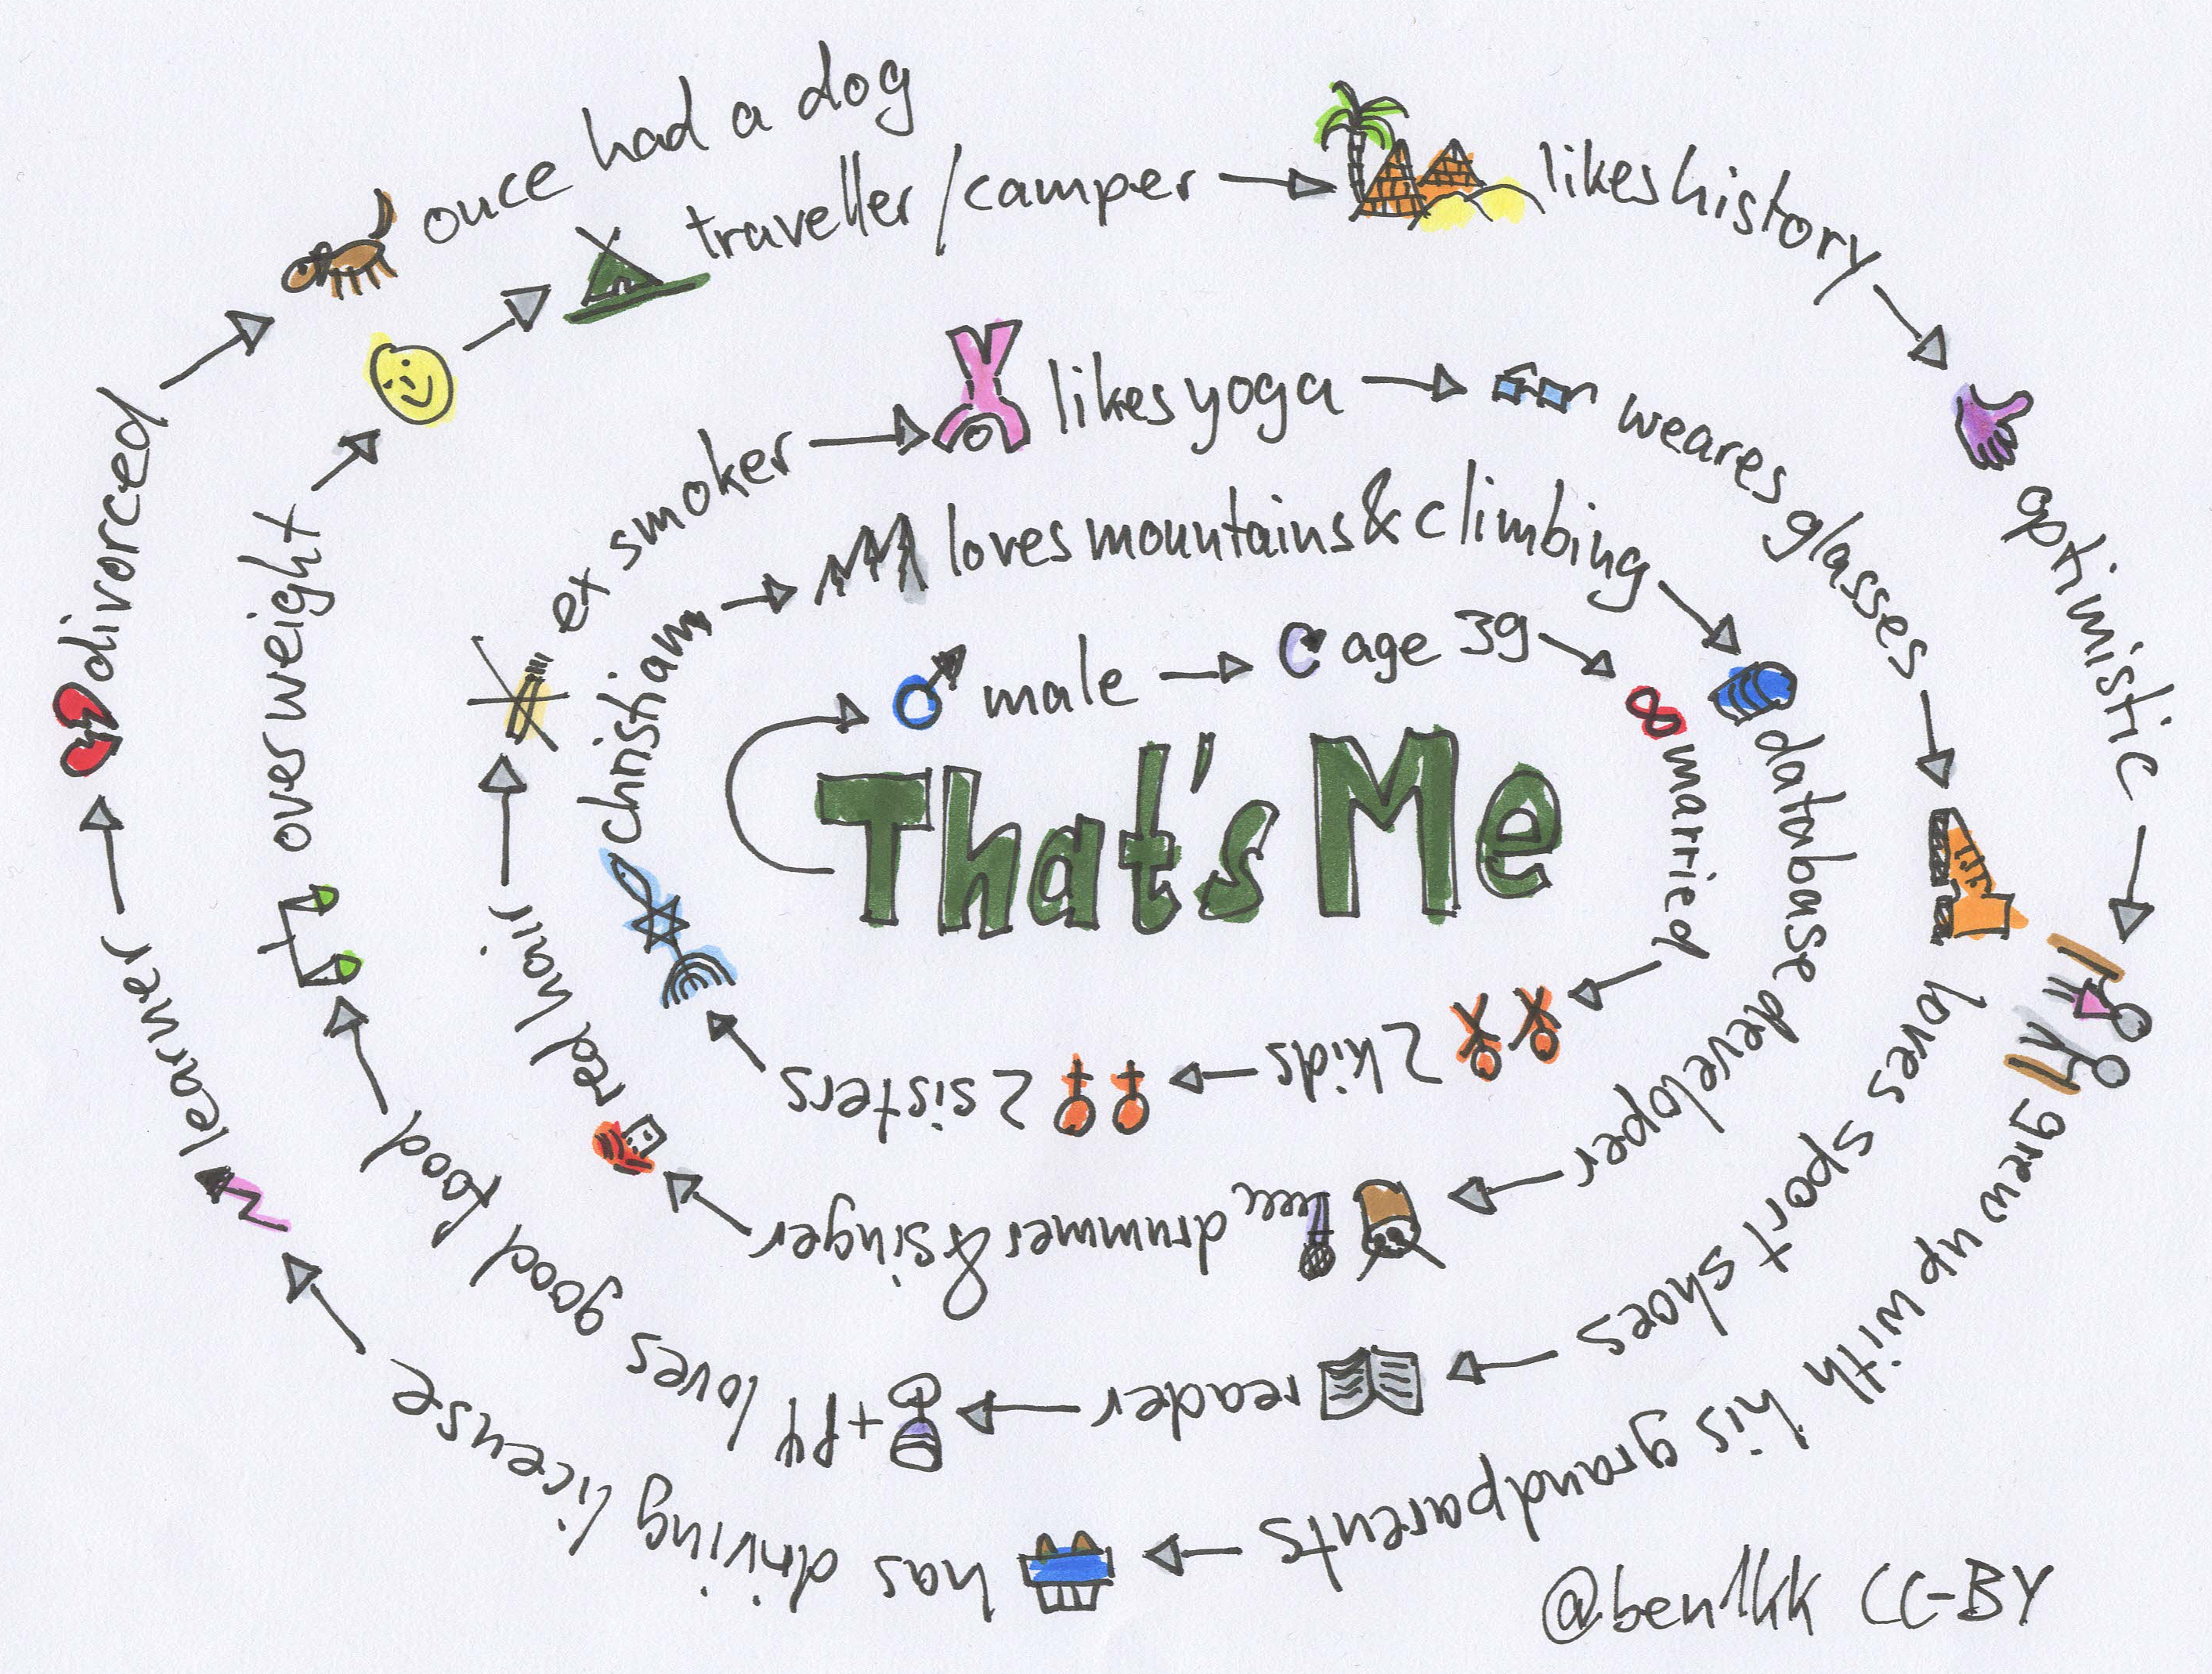 That's Me
male
age 39
married
2 kids
2 sisters
christian
loves mountains & climbing
database developer
drummer & singer
red hair
ex smoker
likes yoga
weares glasses
loves sport shoes
reader
+ loves good food
overweight
traveller / camper
likes history
optimistic
grew up with his grandparents
has driving license
learner
divorced
once had a dog
@ben1kk CC-BY